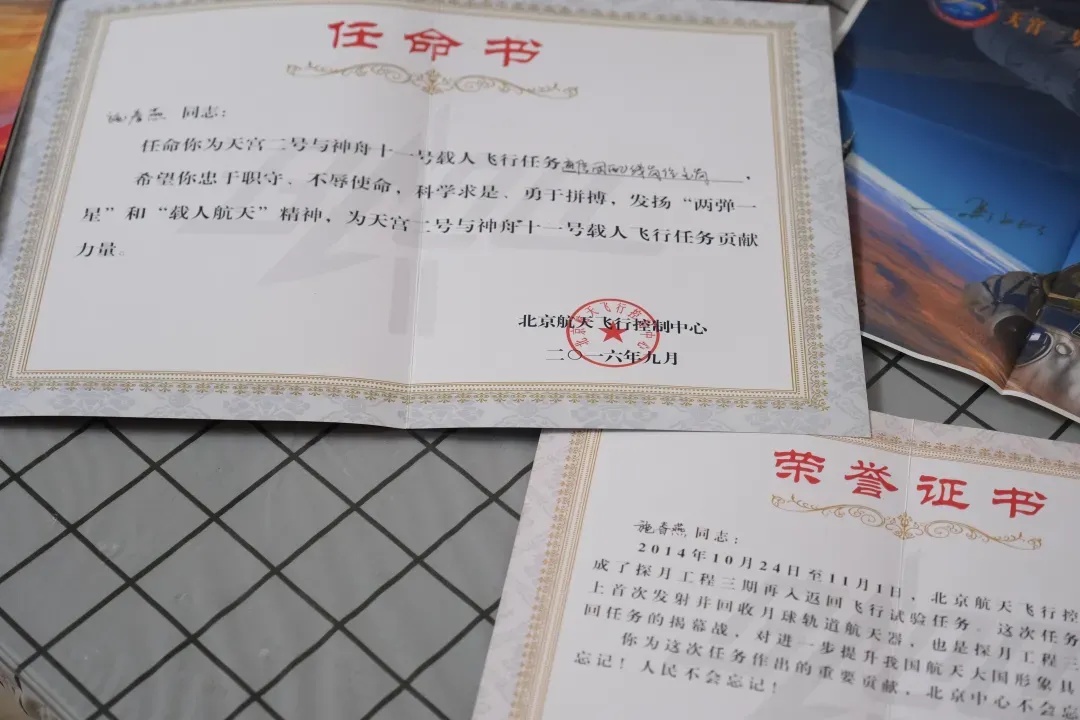 任命书
施春燕 同志:
任命你为天宫二号与神舟十一号载人飞行任务
希望你忠于职守、不辱使命,科学求是、勇于拼搏,发扬“两弹一
星”和“载人航天”精神,为天宫二号与神舟十一号载人飞行任务贡献
力量。
北京航天飞行控制中心
二〇一六年九月
天宫二号
荣誉证书
施春燕 同志:
2014年10月24日至11月1日,北京航天飞行控
成了探月工程三期再入返回飞行试验任务。这次任务
上首次发射并回收月球轨道航天器,也是探月工程三
回任务的揭幕战,对进一步提升我国航天大国形象具
你为这次任务作出的重要贡献,北京中心不会忘
忘记!人民不会忘记!